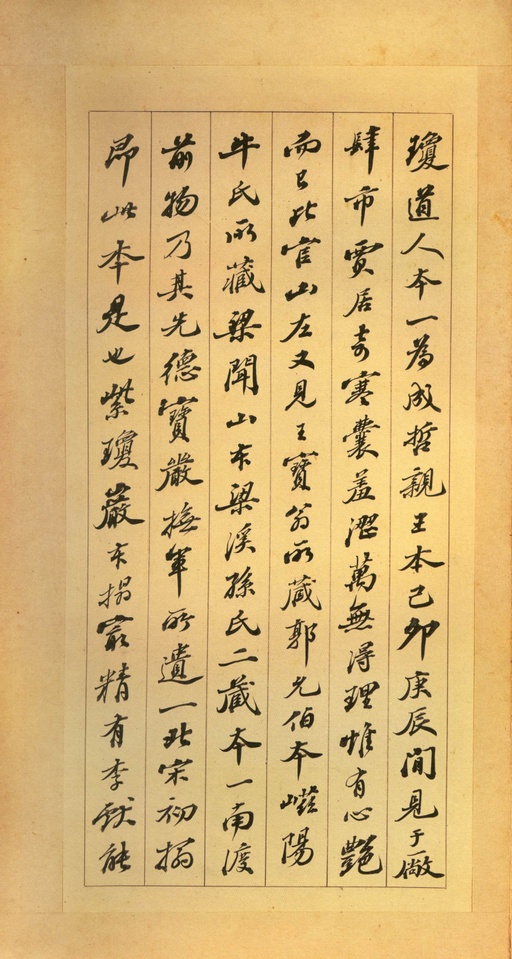 瓊道人本一為成哲親王本己卯庚辰間見于廠
肆市賈居奇寒囊羞澀萬無得理惟有心艷
而已比官山左又見王寶翁所藏郭允伯本嵫陽
牛氏所藏梁聞山本梁溪孫氏二藏本一南渡
前物乃其先德寶巖撫軍所遺一北宋初搨
即此本是也紫瓊巖本搨㝡精有李